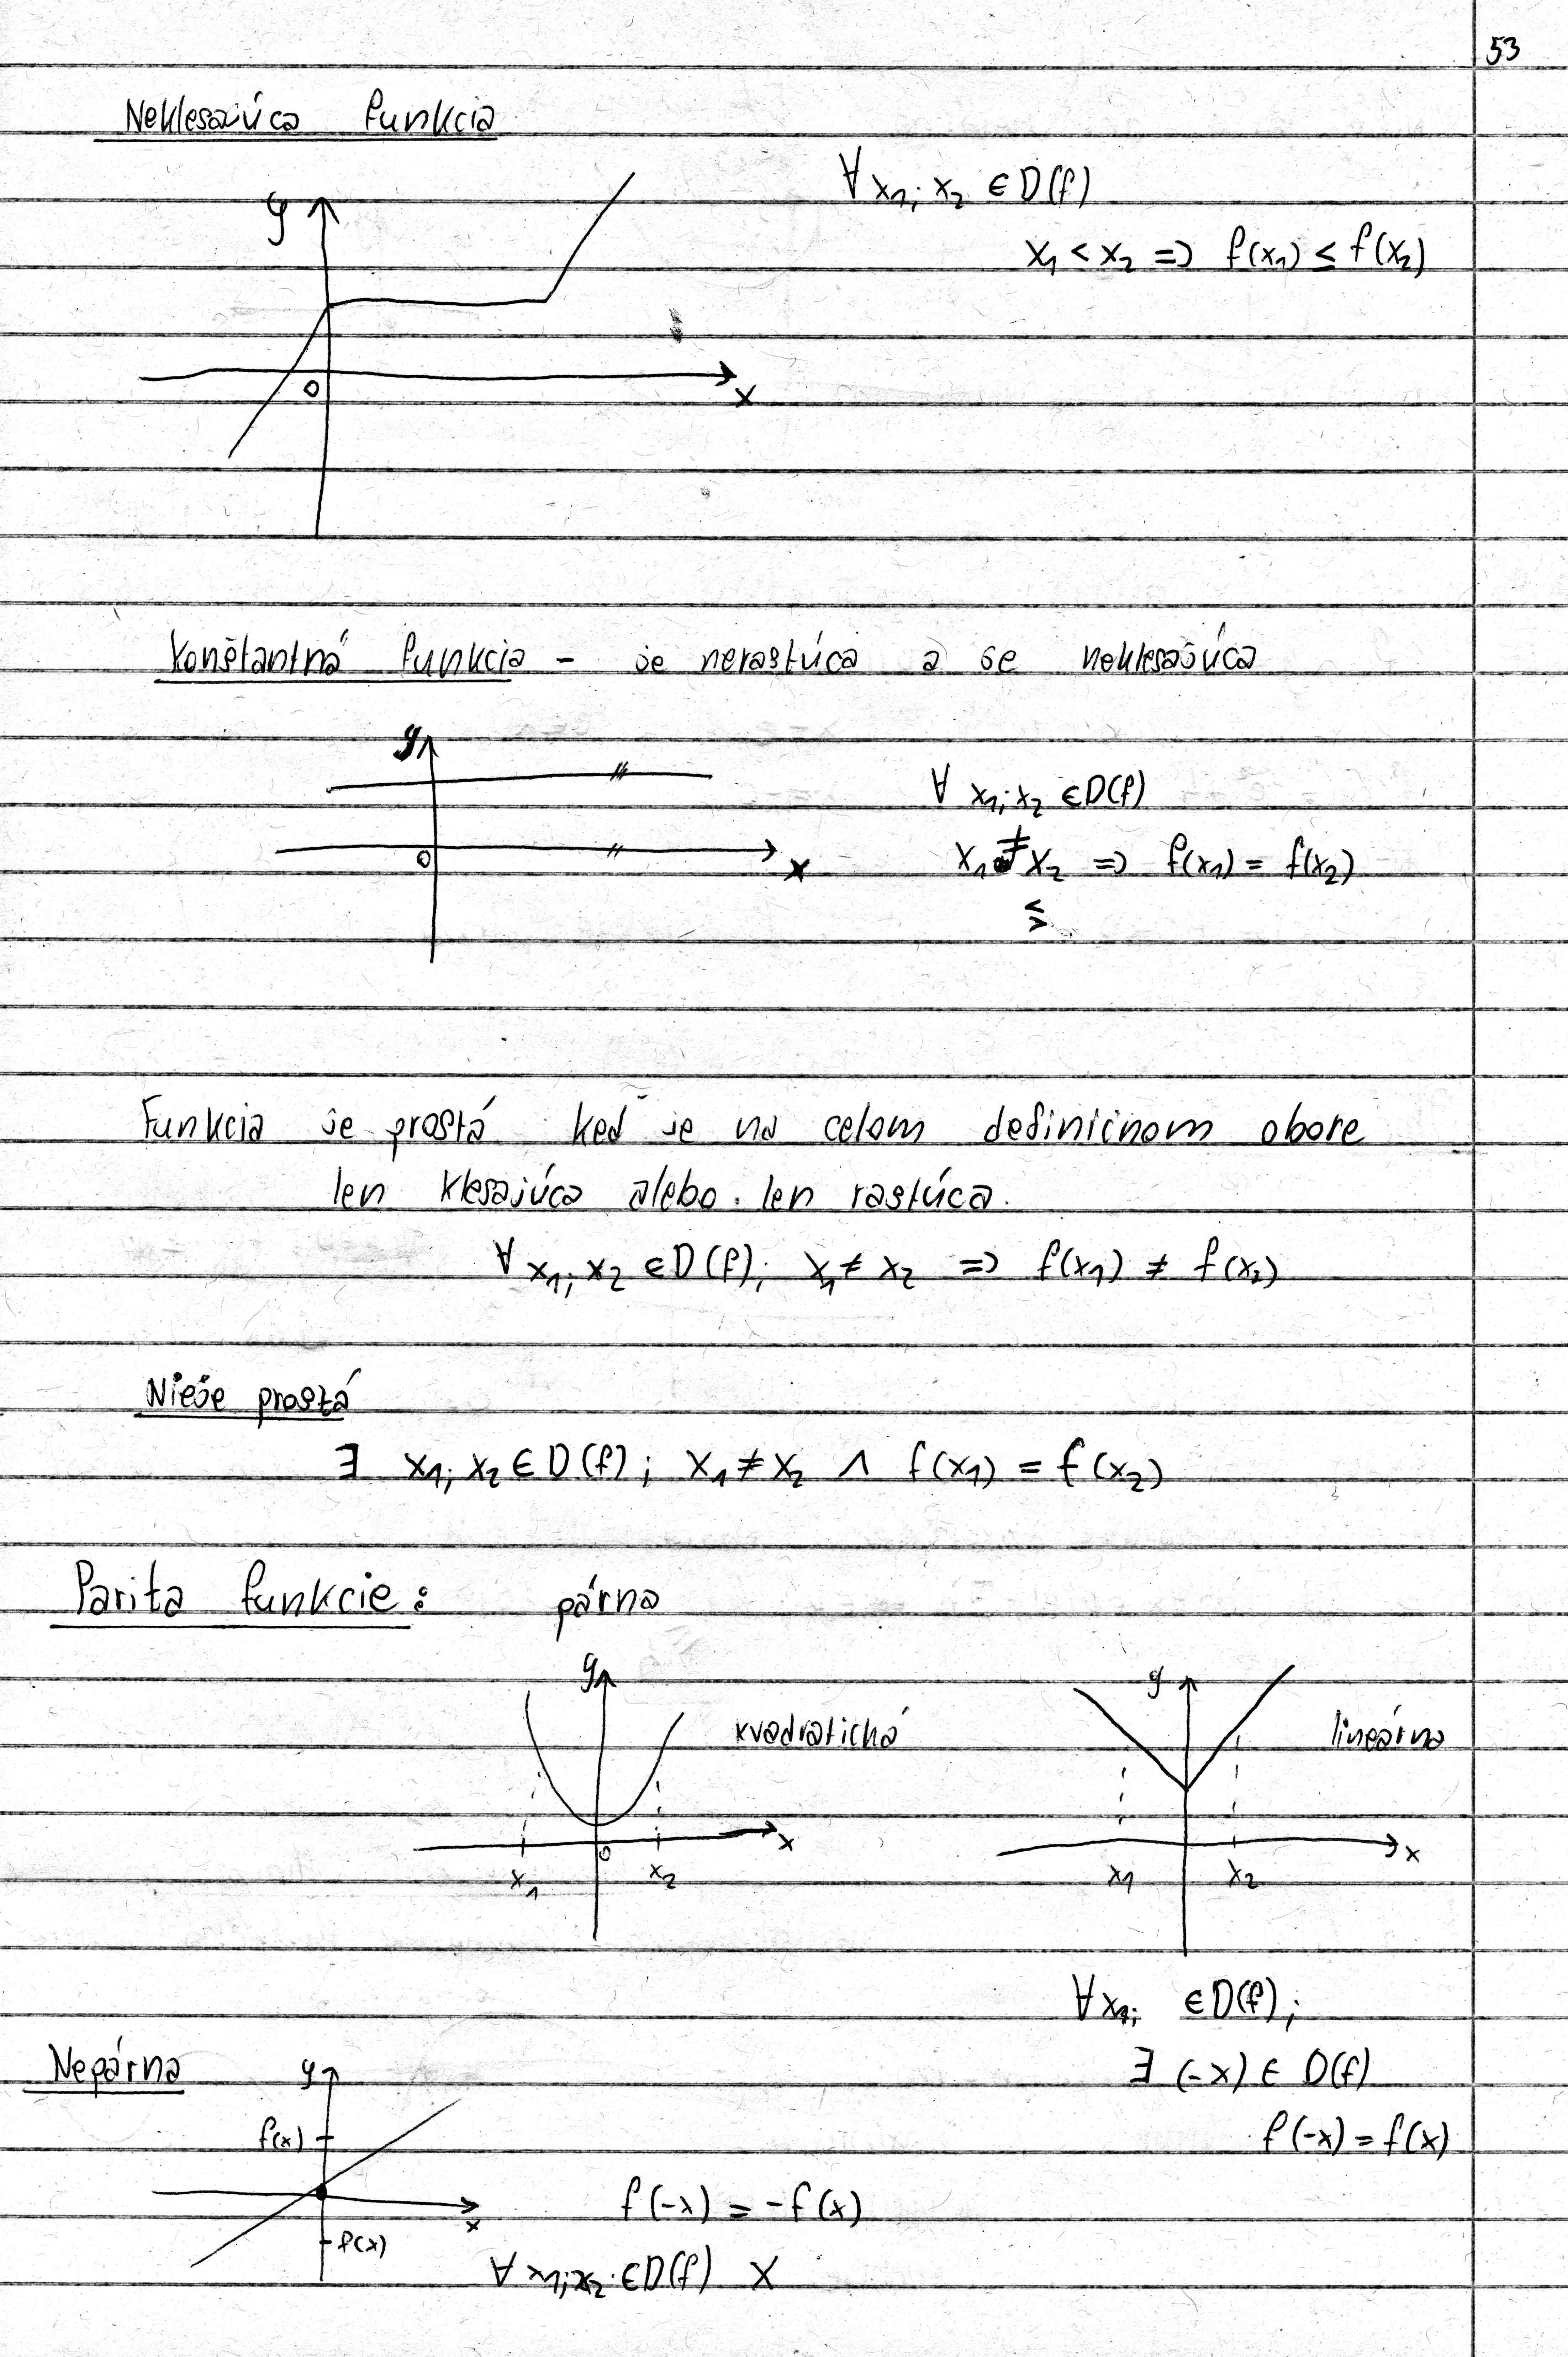 53
Neklesajúca funkcia
y
∀ x₁; x₂ ∈ D(f)
x₁ < x₂ => f(x₁) ≤ f(x₂)
0
x
Konštantná funkcia - je nerastúca a je neklesajúca
y
∀ x₁; x₂ ∈ D(f)
0
x
x₁ ≠ x₂ => f(x₁) = f(x₂)
<
>
Funkcia je prostá keď je na celom definičnom obore
len klesajúca alebo len rastúca.
∀ x₁; x₂ ∈ D(f); x₁ ≠ x₂ => f(x₁) ≠ f(x₂)
Nieje prostá
∃ x₁; x₂ ∈ D(f); x₁ ≠ x₂ ∧ f(x₁) = f(x₂)
Parita funkcie: párna
y
y
kvadratická
lineárna
x
x
0
x₁
x₂
x₁
x₂
∀ x₁; ∈ D(f);
∃ (-x) ∈ D(f)
f(-x) = f(x)
Nepárna
y
f(x)
x
f(-x) = -f(x)
f(x)
∀ x₁; x₂ ∈ D(f) X